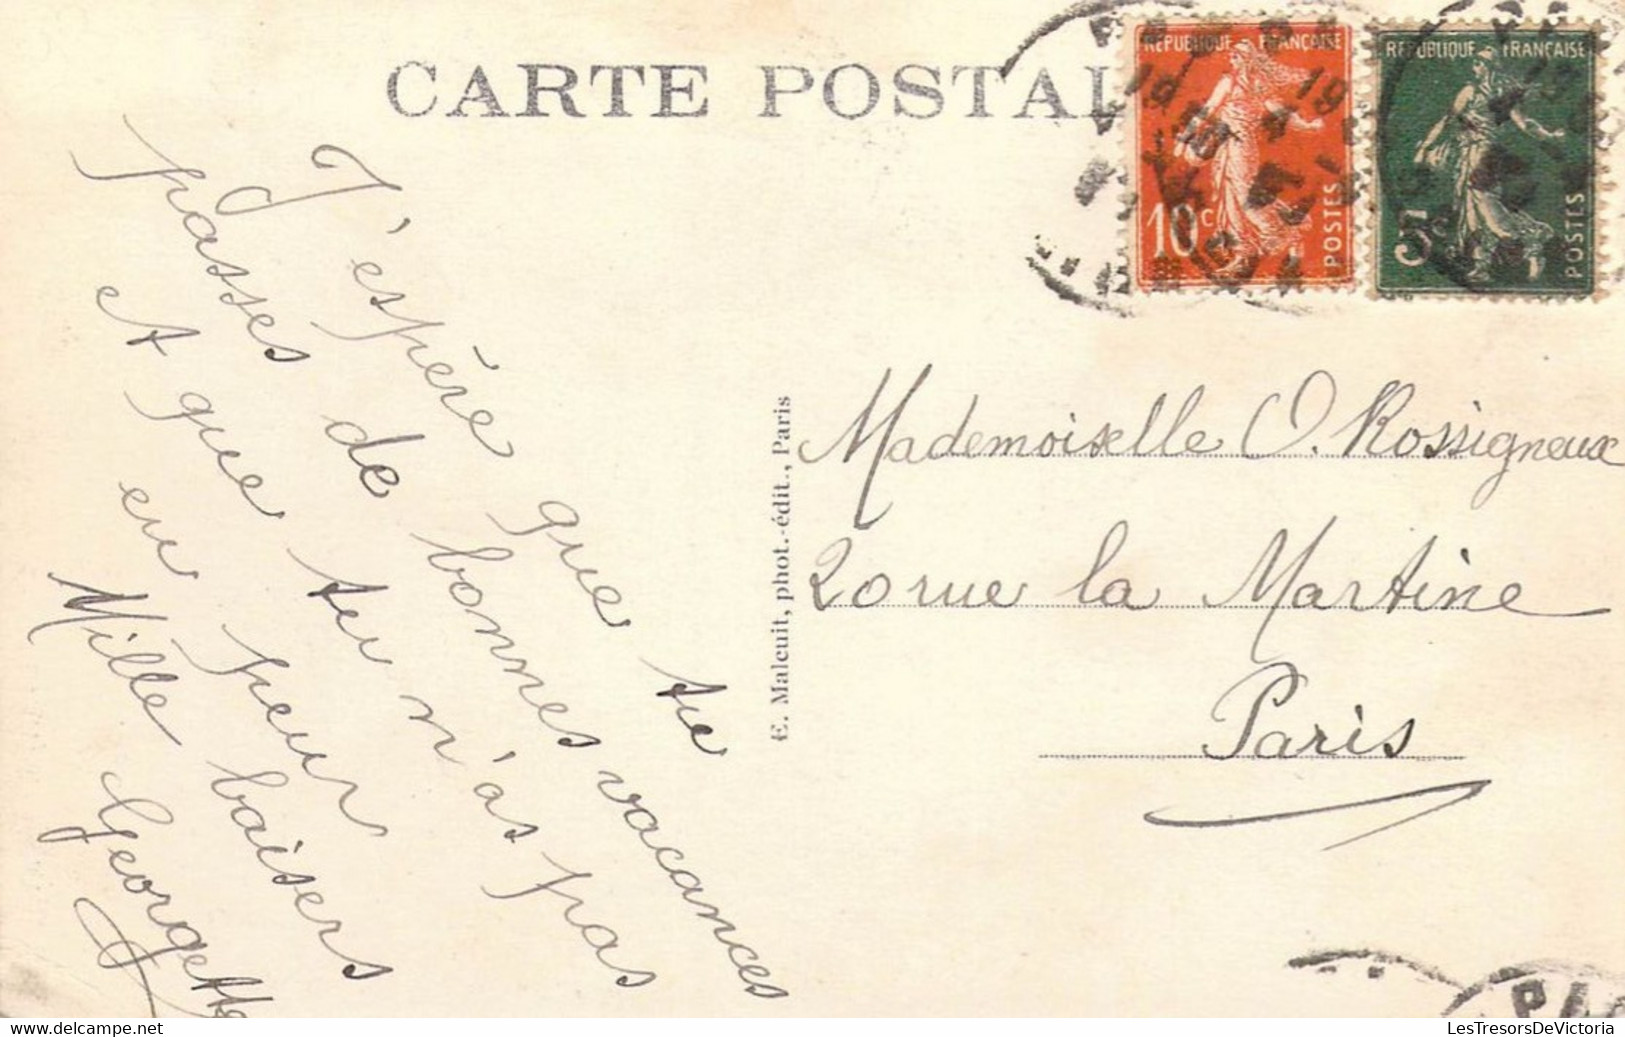 CARTE POSTAL
RÉPUBLIQUE FRANÇAISE
10 c
POSTES
RÉPUBLIQUE FRANÇAISE
5
POSTES
J'espère que tu
passes de bonnes vacances
et que tu n'as pas
eu peur
Mille baisers
Georgette
E. Malcuit, phot.-édit., Paris
Mademoiselle O. Rossigneux
20 rue la Martine
Paris
www.delcampe.net
LesTresorsDeVictoria